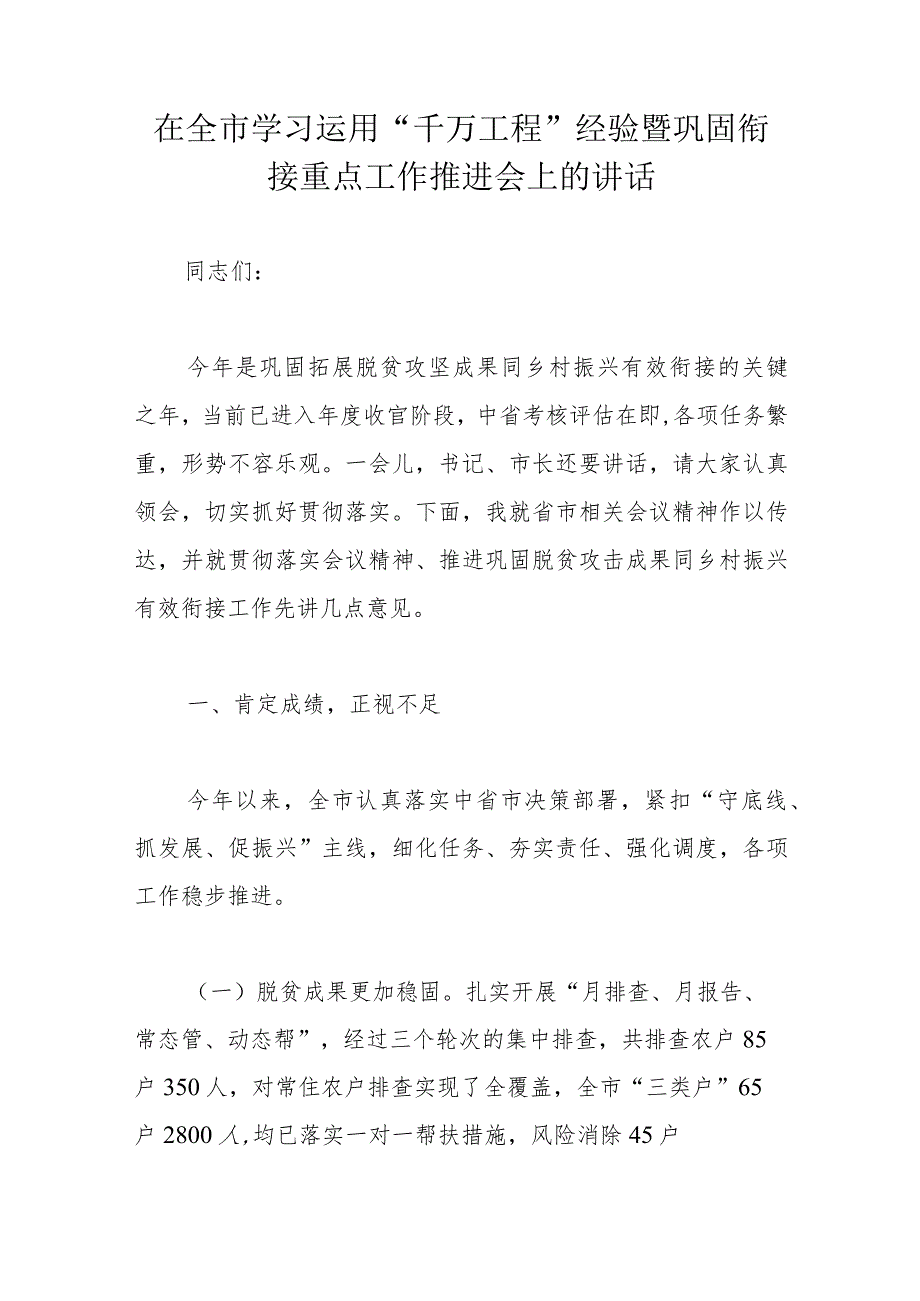 在全市学习运用“千万工程”经验暨巩固衔
接重点工作推进会上的讲话
同志们：
今年是巩固拓展脱贫攻坚成果同乡村振兴有效衔接的关键
之年，当前已进入年度收官阶段，中省考核评估在即,各项任务繁
重，形势不容乐观。一会儿，书记、市长还要讲话，请大家认真
领会，切实抓好贯彻落实。下面，我就省市相关会议精神作以传
达，并就贯彻落实会议精神、推进巩固脱贫攻击成果同乡村振兴
有效衔接工作先讲几点意见。
一、肯定成绩，正视不足
今年以来，全市认真落实中省市决策部署，紧扣“守底线、
抓发展、促振兴”主线，细化任务、夯实责任、强化调度，各项
工作稳步推进。
（一）脱贫成果更加稳固。扎实开展“月排查、月报告、
常态管、动态帮”，经过三个轮次的集中排查，共排查农户 85
户 350 人，对常住农户排查实现了全覆盖，全市“三类户”65
户 2800 人,均已落实一对一帮扶措施，风险消除 45 户